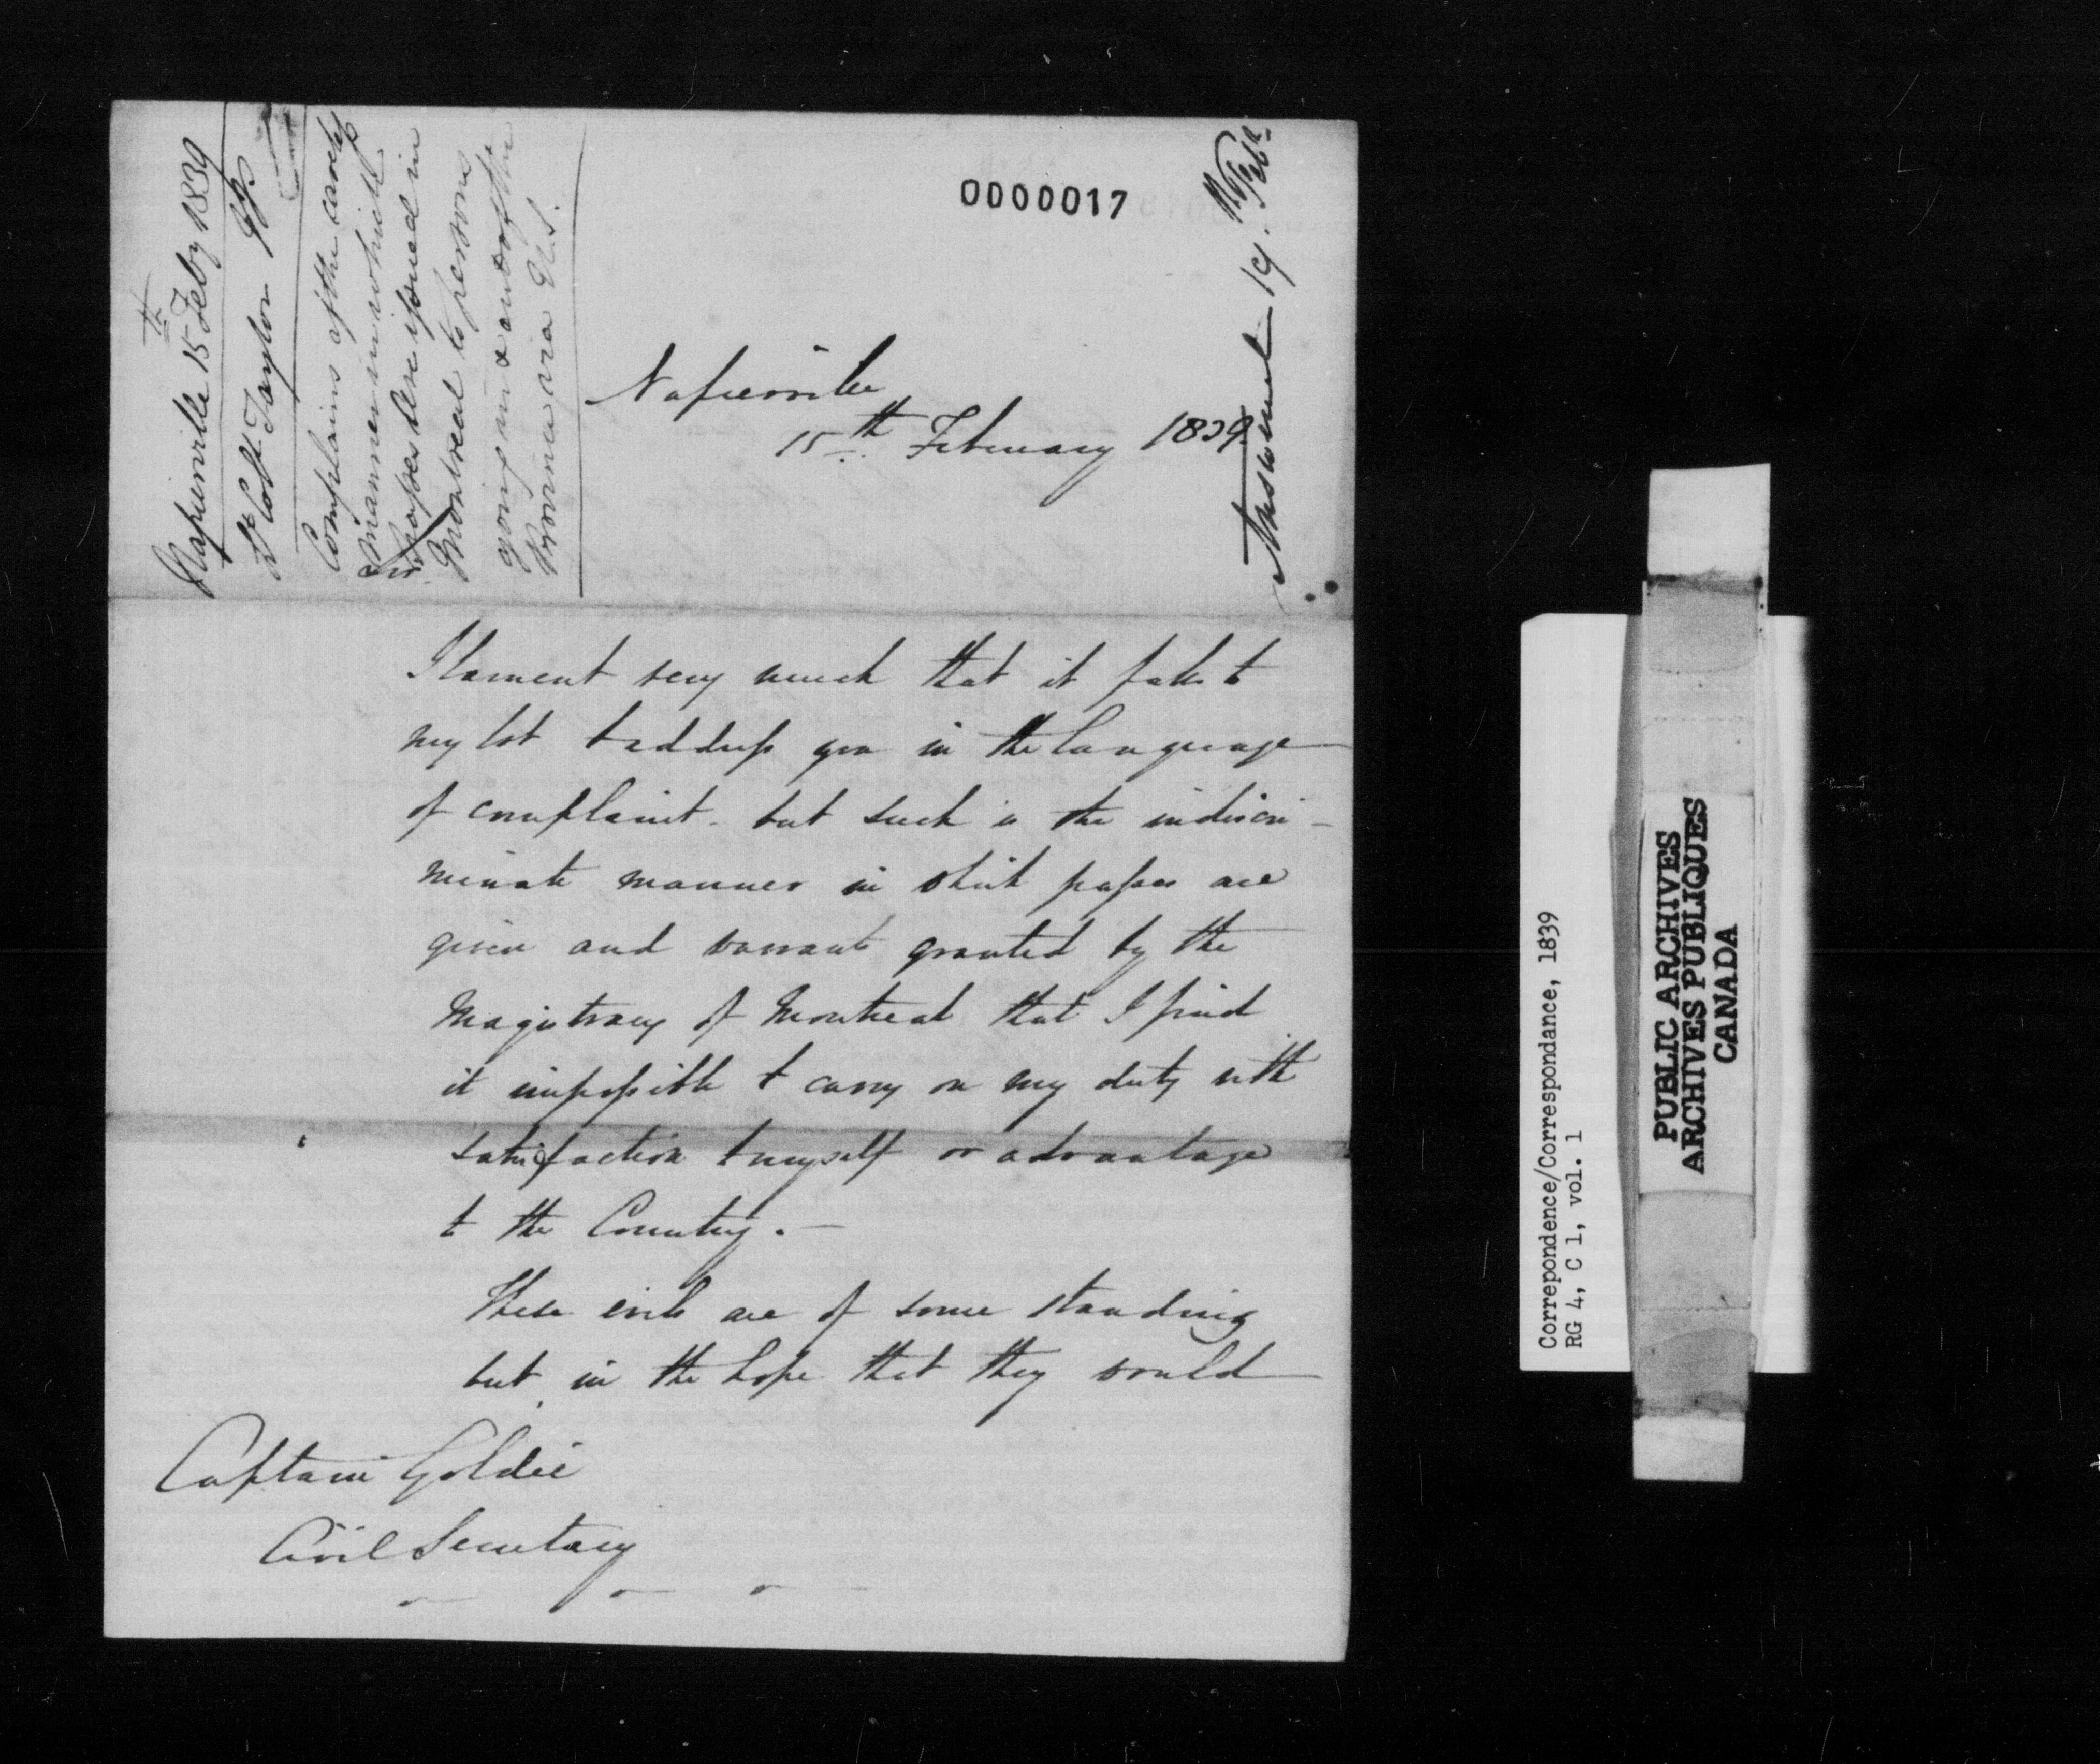 Napierville 15th Feby 1839
Lt Coll. Taylor
Complains of the careless
manner in which
Passes are issued in
Montreal to persons
going in & out of the
Province via U.S.
0000017
Answered 19. Feb.
Napierville
15th February 1839.
Sir.
I lament very much that it falls to
my lot to address you in the language
of complaint. but such is the indiscri-
minate manner in which passes are
given and warrants granted by the
Magistracy of Montreal that I find
it impossible to carry on my duty with
satisfaction to myself or advantage
to the Country. —
These evils are of some standing
but in the hope that they would
Captain Goldie
Civil Secretary
Correpondence/Correspondance, 1839
RG 4, C 1, vol. 1
PUBLIC ARCHIVES
ARCHIVES PUBLIQUES
CANADA